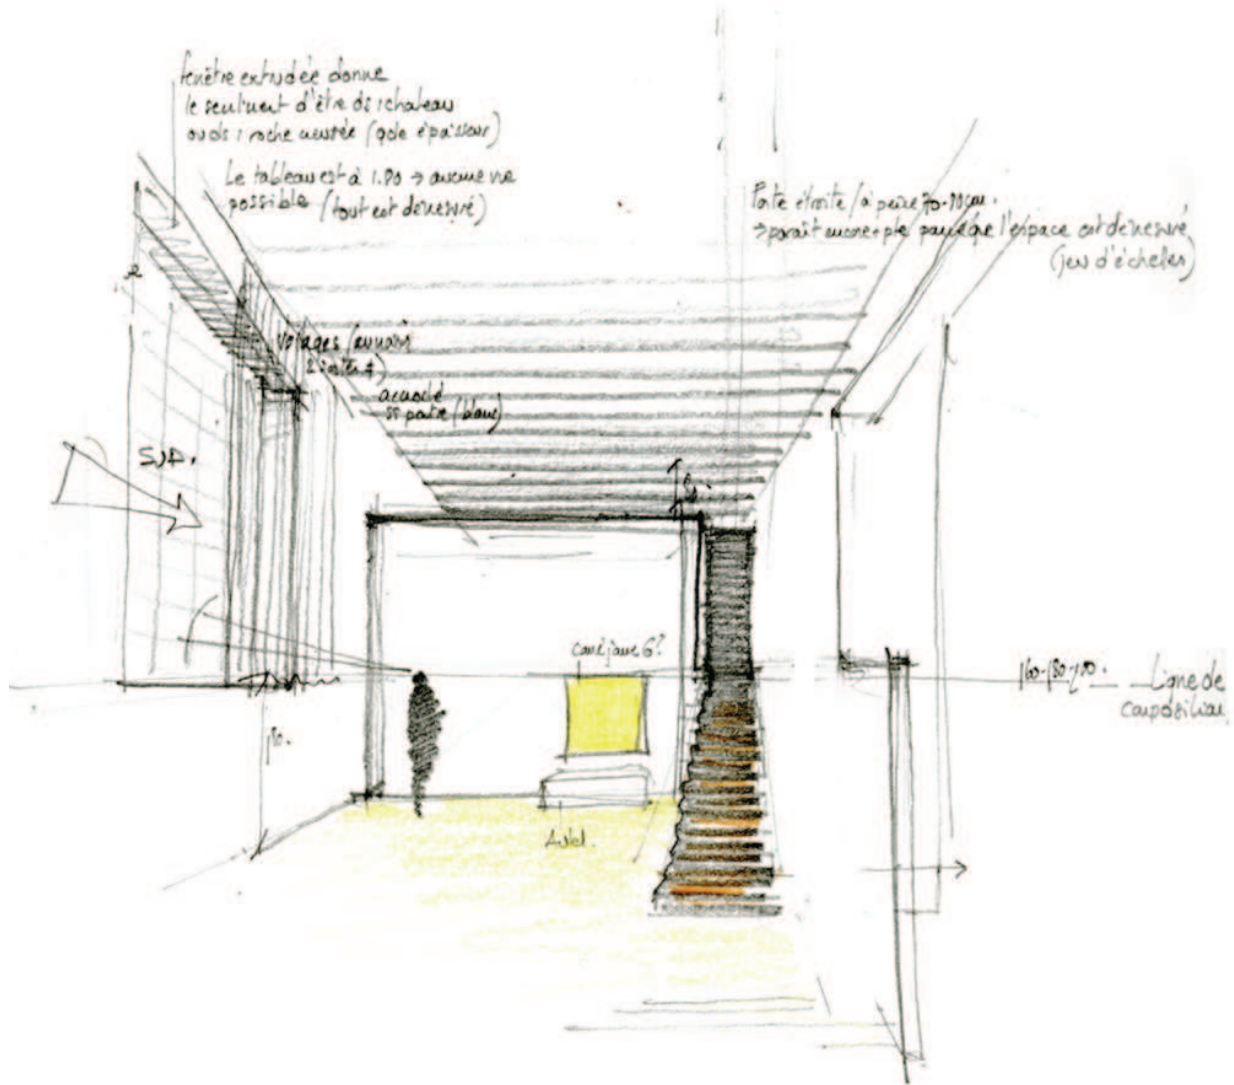 fenêtre extrudée donne
le sentiment d'être ds 1 chateau
ou ds 1 roche creusée (gde épaisseur)
Le tableau est à 1.80 → aucune vue
possible (tout est démesuré)
Porte étroite / à peine 70-80cm.
→ paraît encore + pte parceque l'espace est démesuré
(jeu d'échelles)
voilages (au moins
accroché
ss poutre (blanc)
SUD.
carré jaune G?
160-180-200.
Ligne de
composition
180.
Autel.